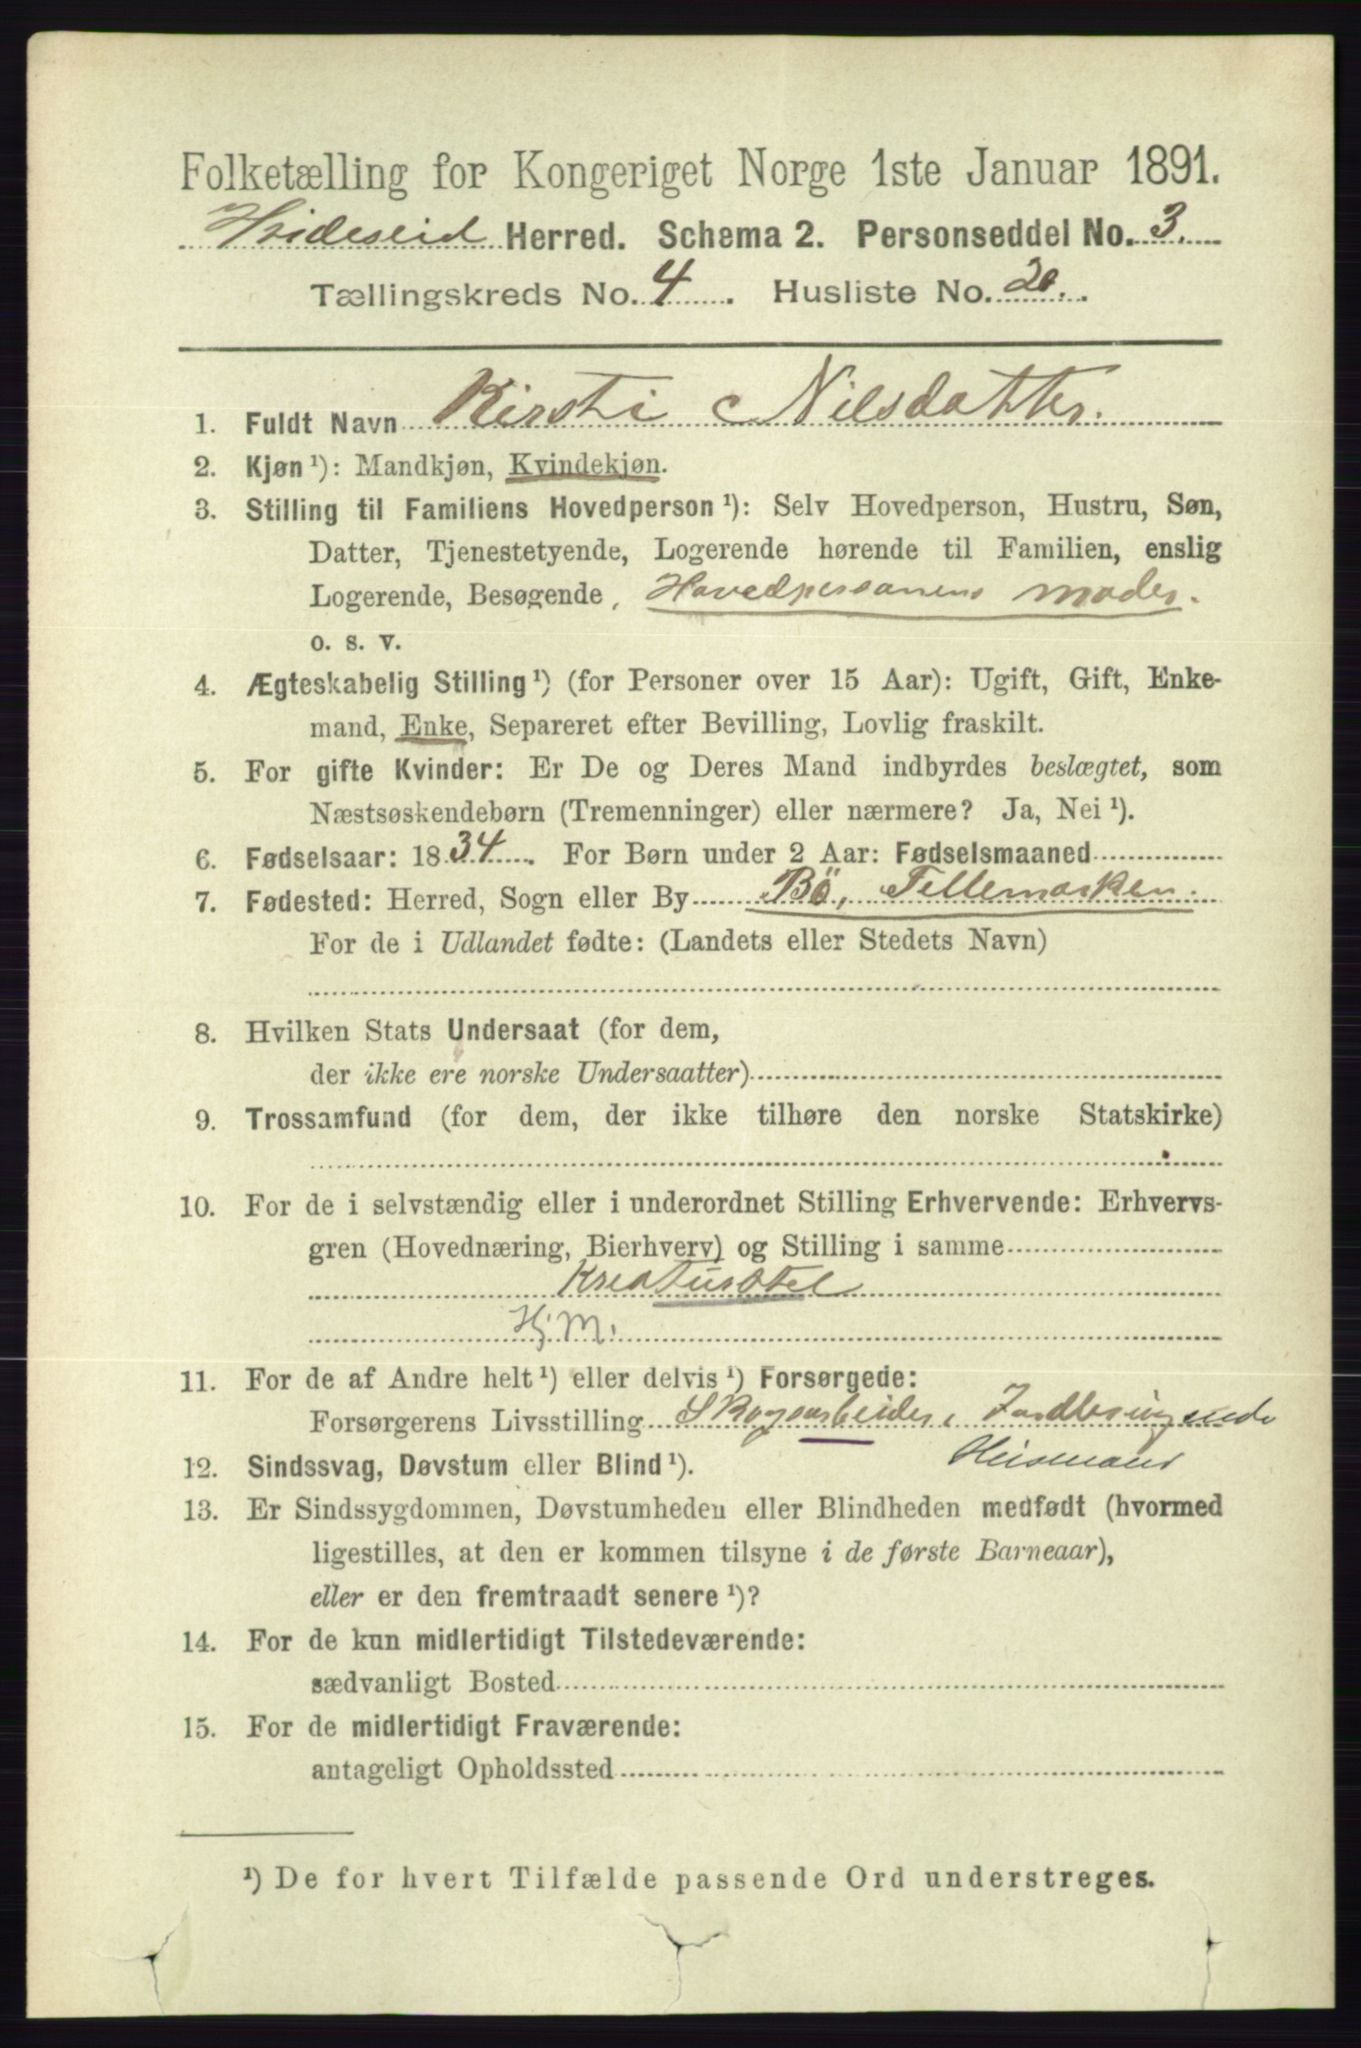 Folketælling for Kongeriget Norge 1ste Januar 1891.
Hvideseid Herred. Schema 2. Personseddel No. 3.
Tællingskreds No. 4. Husliste No. 20.
1. Fuldt Navn Kirsti Nilsdatter.
2. Kjøn ¹): Mandkjøn, Kvindekjøn.
3. Stilling til Familiens Hovedperson ¹): Selv Hovedperson, Hustru, Søn,
Datter, Tjenestetyende, Logerende hørende til Familien, enslig
Logerende, Besøgende, Hovedpersonens moder.
o. s. v.
4. Ægteskabelig Stilling ¹) (for Personer over 15 Aar): Ugift, Gift, Enke-
mand, Enke, Separeret efter Bevilling, Lovlig fraskilt.
5. For gifte Kvinder: Er De og Deres Mand indbyrdes beslægtet, som
Næstsøskendebørn (Tremenninger) eller nærmere? Ja, Nei ¹).
6. Fødselsaar: 1834. For Børn under 2 Aar: Fødselsmaaned
7. Fødested: Herred, Sogn eller By Bö, Tellemarken.
For de i Udlandet fødte: (Landets eller Stedets Navn)
8. Hvilken Stats Undersaat (for dem,
der ikke ere norske Undersaatter)
9. Trossamfund (for dem, der ikke tilhøre den norske Statskirke)
10. For de i selvstændig eller i underordnet Stilling Erhvervende: Erhvervs-
gren (Hovednæring, Bierhverv) og Stilling i samme
Kreaturstel
Hj. M.
11. For de af Andre helt ¹) eller delvis ¹) Forsørgede:
Forsørgerens Livsstilling Skogsarbeider,
Husmand
12. Sindssvag, Døvstum eller Blind ¹).
13. Er Sindssygdommen, Døvstumheden eller Blindheden medfødt (hvormed
ligestilles, at den er kommen tilsyne i de første Barneaar),
eller er den fremtraadt senere ¹)?
14. For de kun midlertidigt Tilstedeværende:
sædvanligt Bosted
15. For de midlertidigt Fraværende:
antageligt Opholdssted
¹) De for hvert Tilfælde passende Ord understreges.